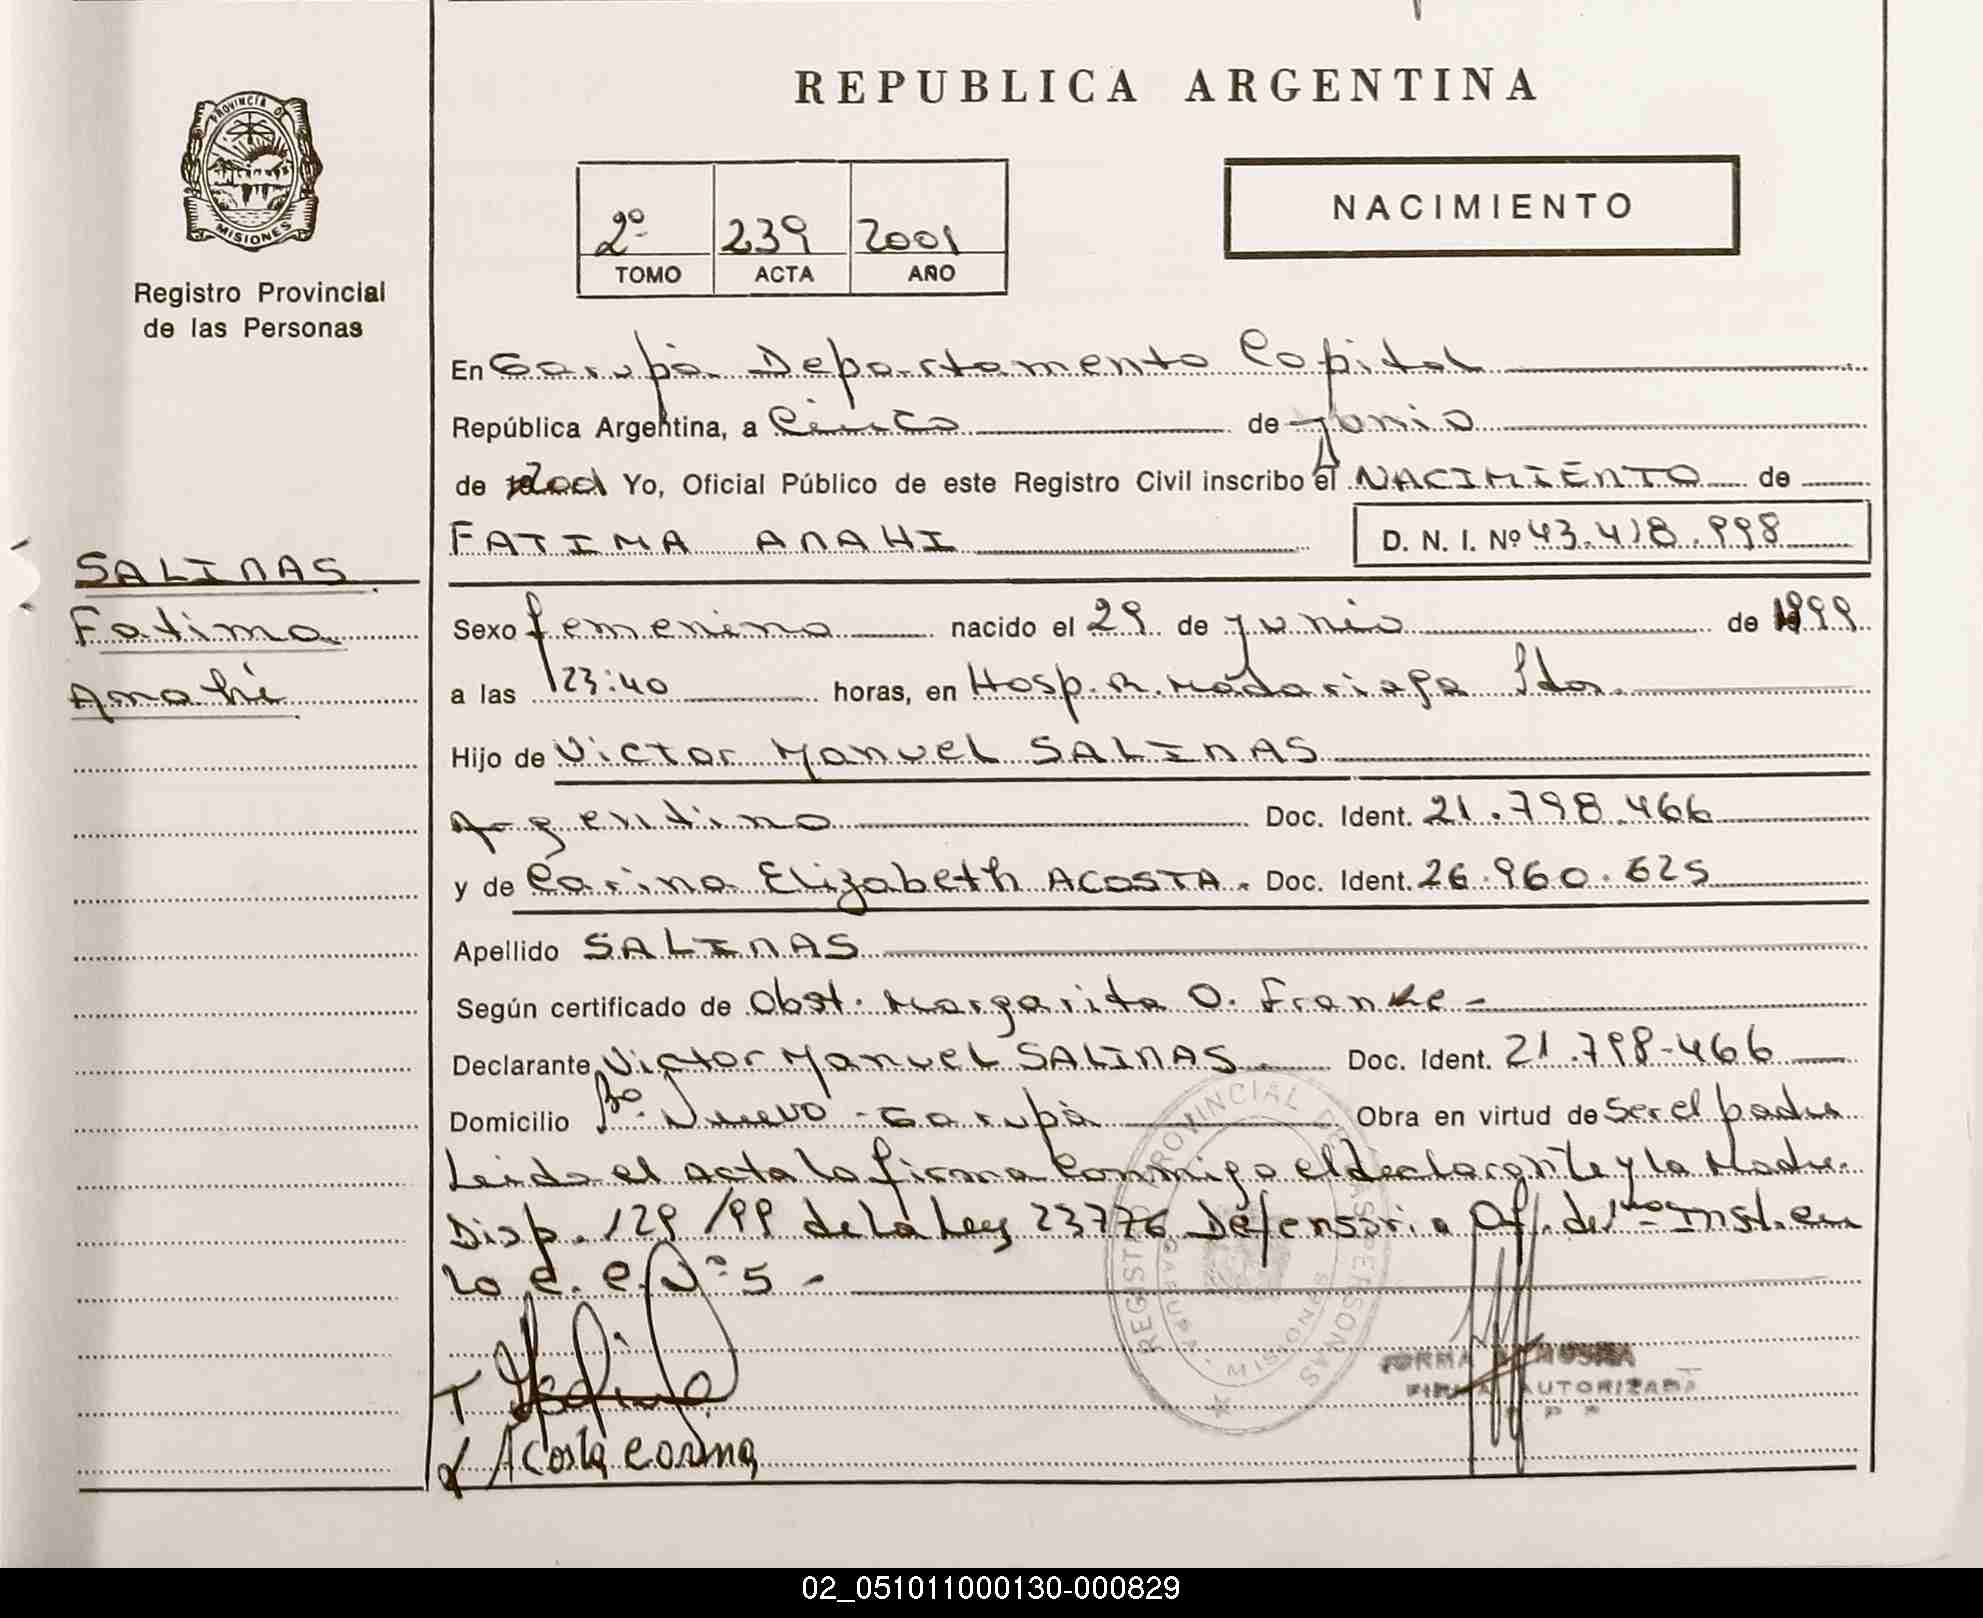 REPUBLICA ARGENTINA
PROVINCIA DE
MISIONES
Registro Provincial
de las Personas
2º 239 2001
TOMO ACTA AÑO
NACIMIENTO
En Garupà Departamento Capital
República Argentina, a Cinco de junio
de 2001 Yo, Oficial Público de este Registro Civil inscribo el NACIMIENTO de
FATIMA ANAHI D. N. I. Nº 43.418.998
SALINAS
Fatima
Anahi
Sexo femenino nacido el 29 de junio de 1999
a las 23:40 horas, en Hosp. R. Madariaga Pdas.
Hijo de Victor Manuel SALINAS
Argentino Doc. Ident. 21.798.466
y de Carina Elizabeth ACOSTA. Doc. Ident. 26.960.625
Apellido SALINAS
Según certificado de Obst. Margarita O. Franke-
Declarante Victor Manuel SALINAS Doc. Ident. 21.798-466
Domicilio Bº. Nuevo - Garupà Obra en virtud de Ser el padre
Leida el acta la firma conmigo el declarante y la Madre.
Disp. 129/99 de la Ley 23776 Defensoria Of. de 1ra Inst. en
lo C. C. Nº 5 -
REGISTRO PROVINCIAL DE LAS PERSONAS
GARUPA
MISIONES
FIRMA AUTORIZADA
R P P
Acosta Carina
02_051011000130-000829